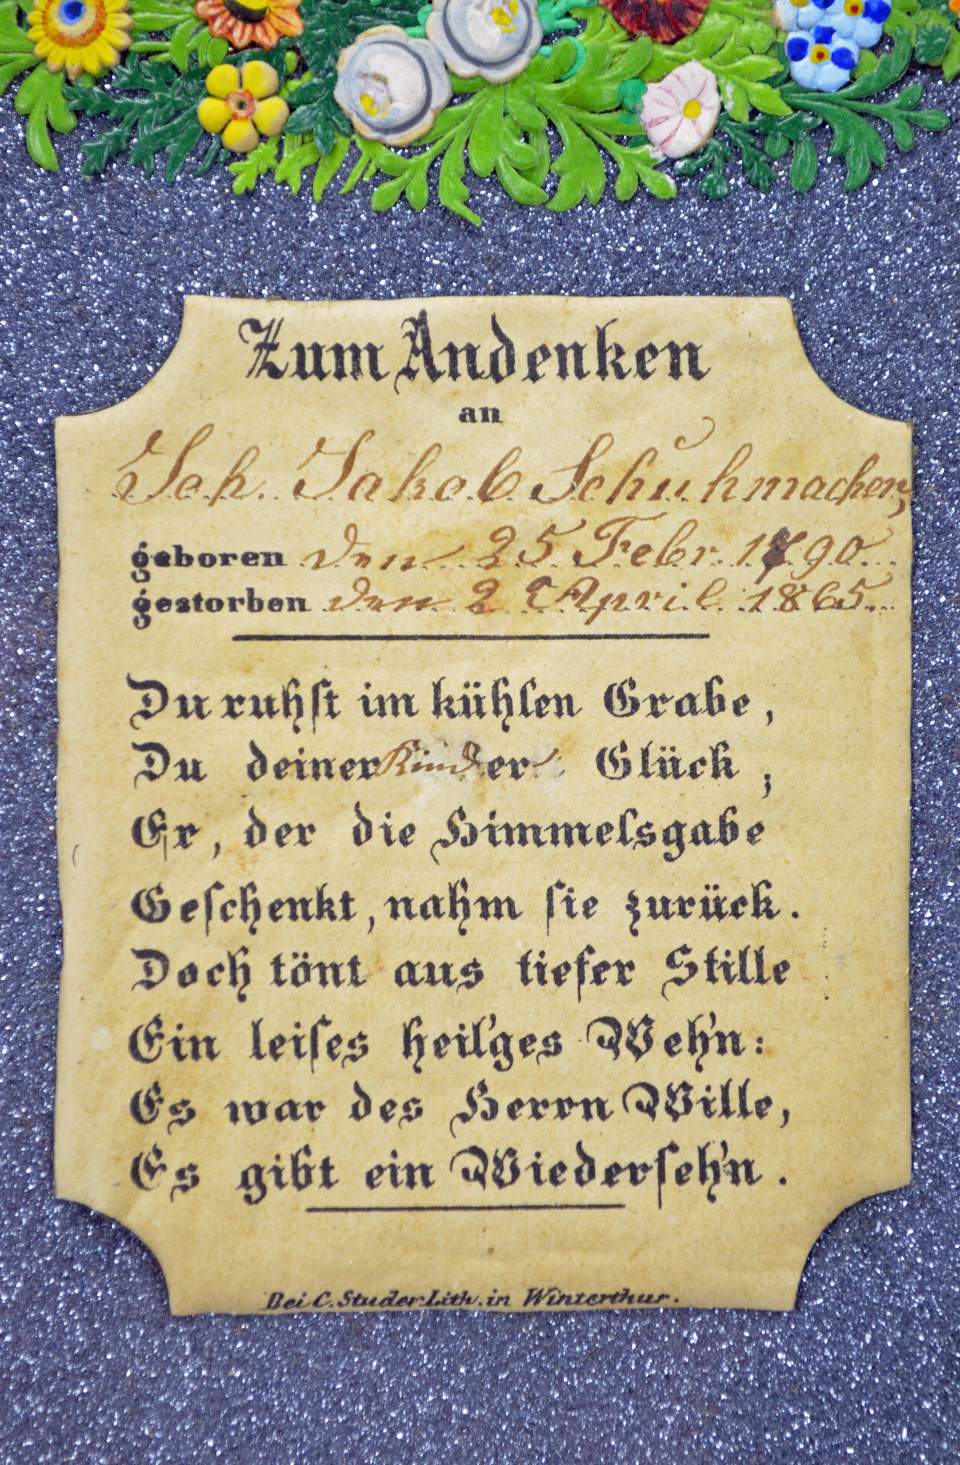 Zum Andenken
an
Joh. Jakob Schuhmacher,
geboren den 25 Febr. 1790.
gestorben den 2 April 1865.
Du ruhst im kühlen Grabe,
Du deiner Kinder Glück;
Er, der die Himmelsgabe
Geschenkt, nahm sie zurück.
Doch tönt aus tiefer Stille
Ein leises heil'ges Weh'n:
Es war des Herrn Wille,
Es gibt ein Wiederseh'n.
Bei C. Studer Lith. in Winterthur.